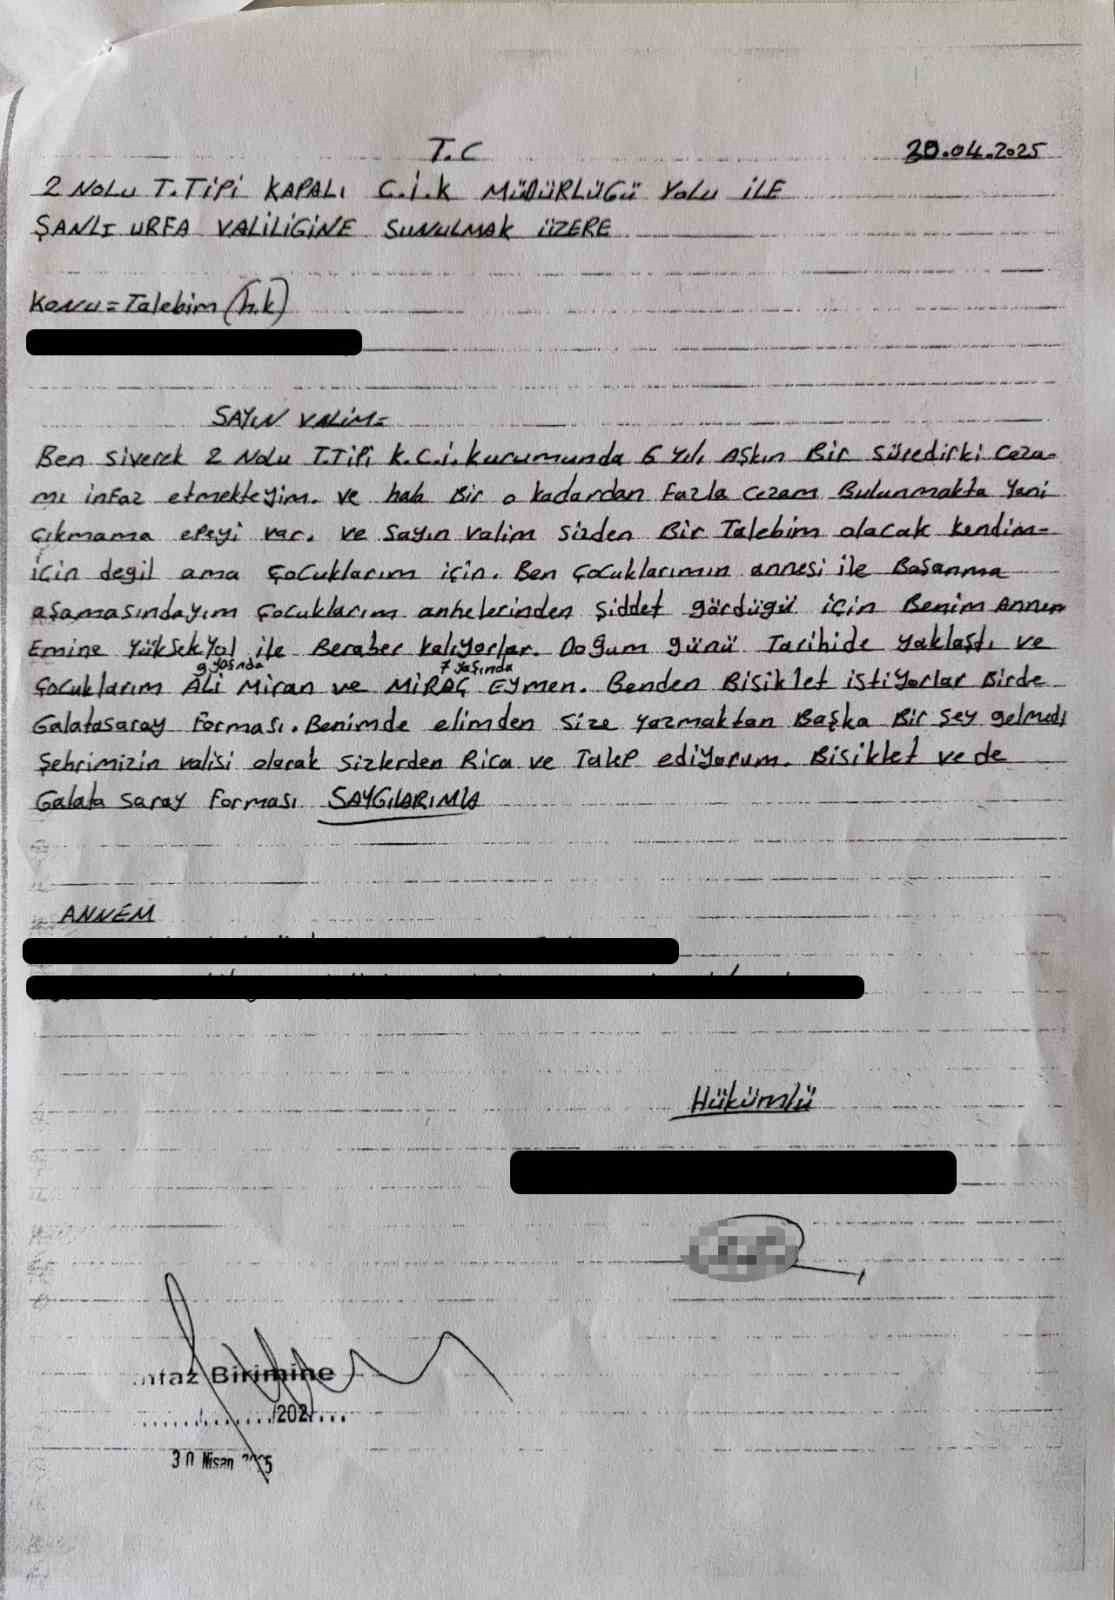 T.C
20.04.2025
2 NOLU T.TİPİ KAPALI C.İ.K MÜDÜRLÜGÜ YOLU İLE
ŞANLI URFA VALİLİGİNE SUNULMAK ÜZERE
Konu=Talebim (h.k)
SAYIN VALİM=
Ben Siverek 2 Nolu T.Tipi K.C.İ.kurumunda 6 Yılı Aşkın Bir Süredirki Ceza-
mı infaz etmekteyim. ve hala Bir o kadardan Fazla Cezam Bulunmakta Yani
Çıkmama epeyi var. ve Sayın Valim Sizden Bir Talebim olacak kendim-
için degil ama Çocuklarım için. Ben Çocuklarımın annesi ile Başanma
aşamasındayım Çocuklarım anhelerinden Şiddet gördügü için Benim Annem
Emine Yüksekyol ile Beraber kalıyorlar. Doğum günü Tarihide Yaklaştı ve
9 yaşında 7 yaşında
Çocuklarım Ali Miran ve MİRAÇ EYmen. Benden Bisiklet istiyorlar Birde
Galatasaray Forması. Benimde elimden Size Yazmaktan Başka Bir Şey gelmedi
Şehrimizin Valisi olarak Sizlerden Rica ve Talep ediyorum. Bisiklet ve de
Galata Saray Forması SAYGILARIMLA
ANNEM
Hükümlü
nfaz Birimine
/202
30 Nisan